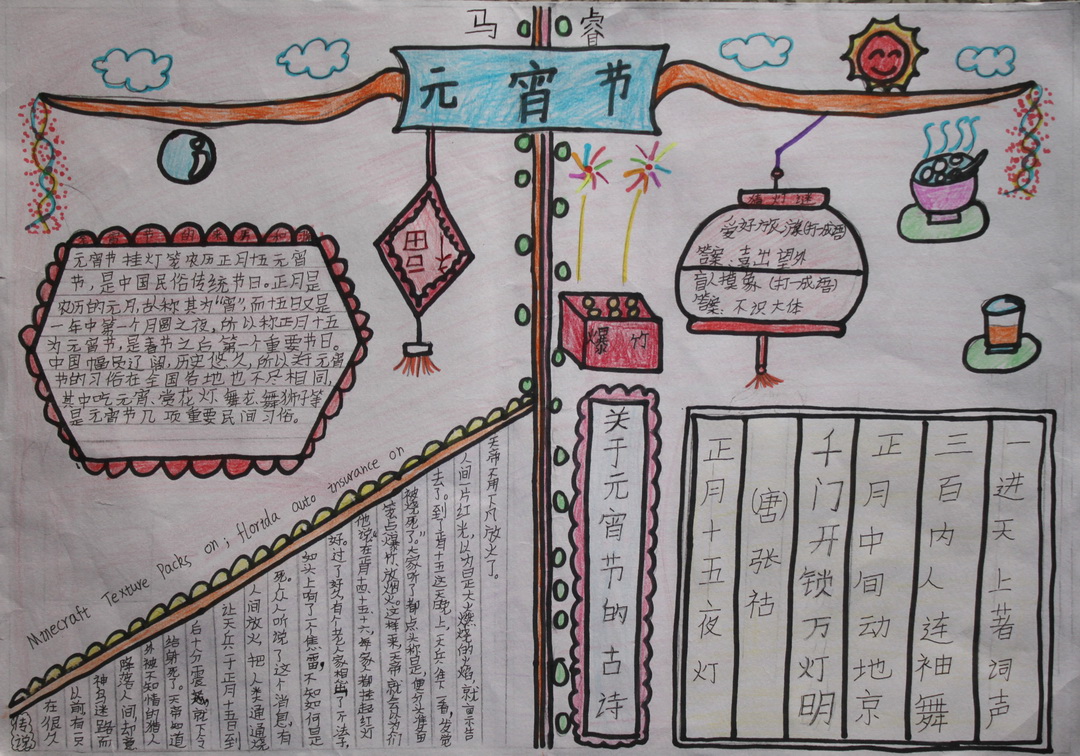 马 睿
元 宵 节
元宵节的来
元宵节挂灯笼农历正月十五元宵
节，是中国民俗传统节日。正月是
农历的元月，故称其为“宵”，而十五日又是
一年中第一个月圆之夜，所以称正月十五
为元宵节，是春节之后第一个重要节日。
中国幅员辽阔，历史悠久，所以若元宵
节的习俗在全国各地也不尽相同，
其中吃元宵、赏花灯、舞龙、舞狮子等
是元宵节几项重要民间习俗。
爱好旅
(打一成语)
答案：喜出望外
盲人摸象(打一成语)
答案：不识大体
爆 竹
Minecraft Texture Packs on ; florida auto insurance on
传说
在很久
以前有一只
神鸟迷路而
降落人间，却意
外被不知情的猎人
给射死了。天帝知道
后十分震怒，就下令
让天兵于正月十五日到
人间放火，把人类通通烧
死。众人听说了这个消息，有
如头上响了一个焦雷，不知如何是
好。过了好久有个老人家想出了个法子，
他说“在正月十四、十五、十六，每家都挂起红灯
笼、点爆竹、放烟火。这样来，天帝就会以为人们
被烧死了。”大家听了都点头称是，便分头准备
去了。到了正月十五这天晚上，天兵往下一看，发觉
人间一片红光，以为是正大火燃烧的火焰，就禀告
天帝不用下凡放火了。
关于元宵节的古诗
正月十五夜灯
(唐) 张祜
千门开锁万灯明
正月中间动地京
三百内人连袖舞
一进天上著词声